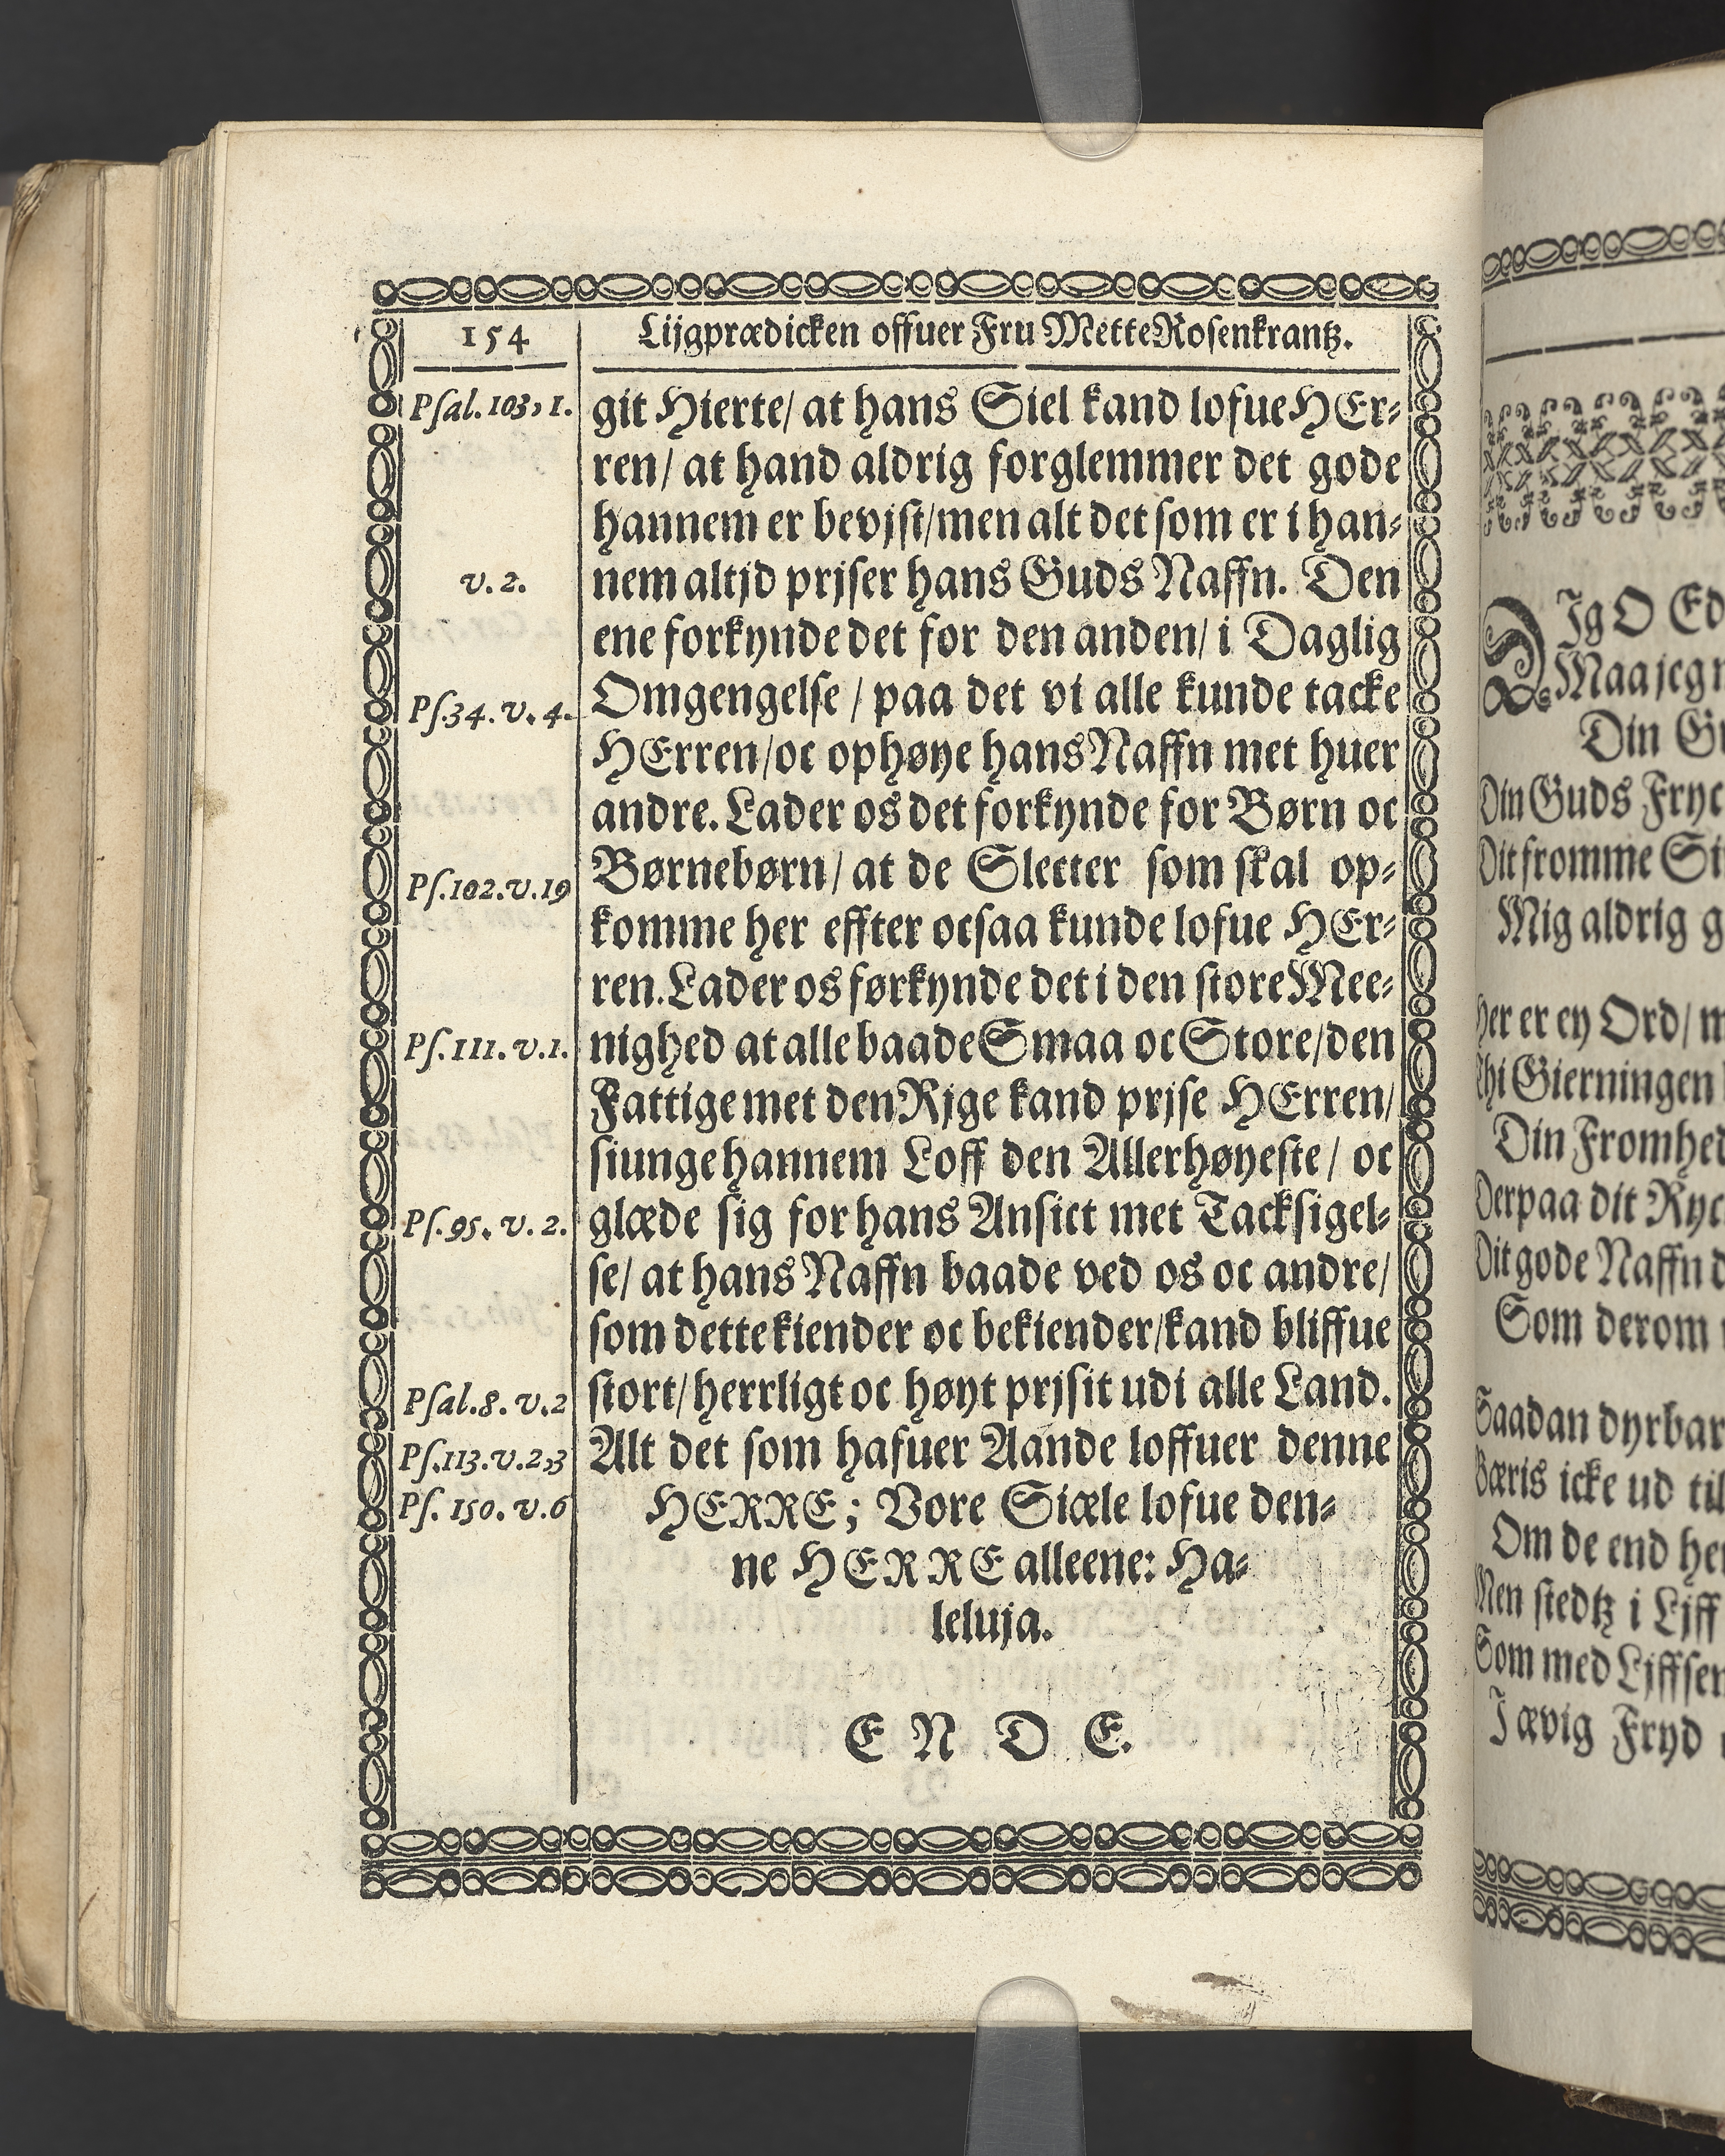 154
Lijgprædicken offuer Fru Mette Rosenkrantz.
Psal. 103, 1.
git Hierte/ at hans Siel kand lofue HEr-
ren/ at hand aldrig forglemmer det gode
hannem er bevjst/men alt det som er i han-
v. 2.
nem altjd prjser hans Guds Naffn. Den
ene forkynde det for den anden/ i Daglig
Ps. 34. v. 4.
Omgengelse / paa det vi alle kunde tacke
HErren/oc ophøye hans Naffn met huer
andre. Lader os det forkynde for Børn oc
Ps. 102. v. 19
Børnebørn/ at de Slecter som skal op-
komme her effter ocsaa kunde lofue HEr-
ren. Lader os førkynde det i den store Mee-
Ps. 111. v. 1.
nighed at alle baade Smaa oc Store/den
Fattige met den Rjge kand prjse HErren/
siunge hannem Loff den Allerhøyeste/ oc
Ps. 95. v. 2.
glæde sig for hans Ansict met Tacksigel-
se/ at hans Naffn baade ved os oc andre/
som dette kiender oc bekiender/kand bliffue
Psal. 8. v. 2
stort/ herrligt oc høyt prjsit udi alle Land.
Ps. 113. v. 2,3
Alt det som hafuer Aande loffuer denne
Ps. 150. v. 6
HERRE; Vore Siæle lofue den-
ne HERRE alleene: Ha-
leluja.
E N D E.
DIg O Ed
Maa jeg
Din
Din Guds
Dit fromme
Mig aldrig
Her er ey Ord/
Thi Gierningen
Din Fromhed
Derpaa dit
Dit gode Naffn
Som derom
Saadan
Bæris icke ud til
Om de end
Men stedtz i Ljff
Som med
I ævig Fryd